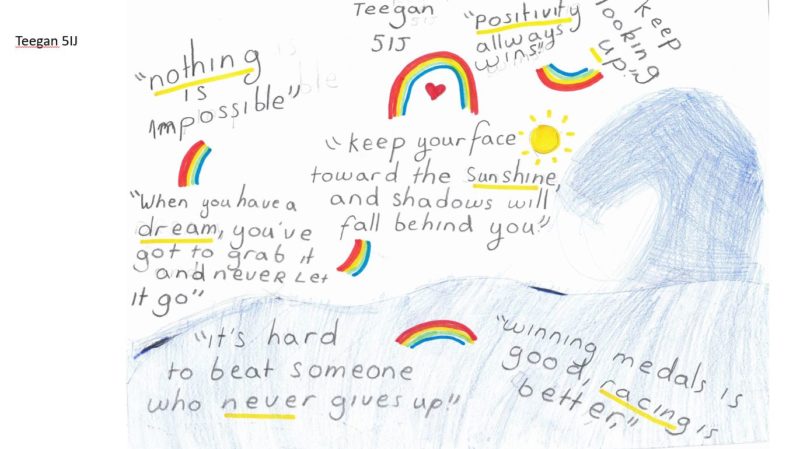 Teegan 5IJ
Teegan
5IJ
"positivity
allways
wins!"
"keep
looking
up!"
"nothing
is
impossible"
"keep your face
toward the sunshine,
and shadows will
fall behind you!"
"When you have a
dream, you've
got to grab it
and never let
it go"
"it's hard
to beat someone
who never gives up!"
"winning medals is
good, racing is
better,"